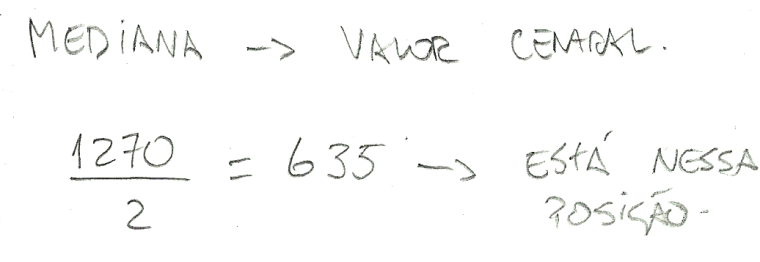 MEDIANA -> VALOR CENTRAL.
1270
—— = 635 -> ESTÁ NESSA
2
POSIÇÃO-